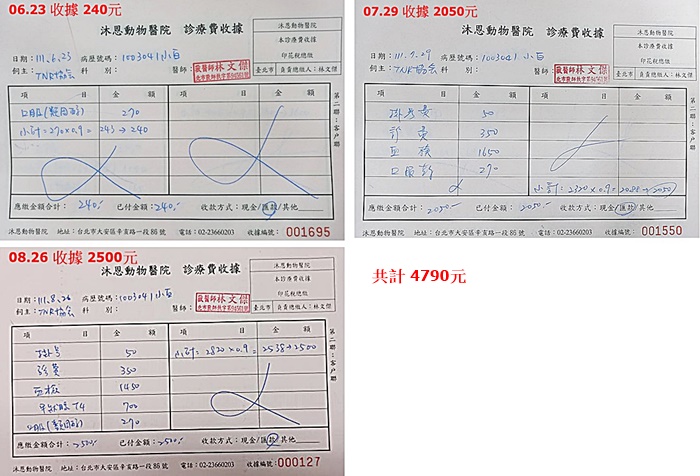 06.23 收據 240元
沐恩動物醫院 診療費收據
沐恩動物醫院
本診療費收據
印花稅總繳
臺北市 負責總繳人:林文傑
日期:111.6.23 病歷號碼:1003041小百
飼主:TNR協會 科 別: 醫師:
獸醫師林文傑
項 目 金 額 項 目 金 額
270
小計=270×0.9=243→240
第二聯:客戶聯
應繳金額合計:240.- 已付金額:240.- 收款方式:現金/匯款/其他
沐恩動物醫院 地址:台北市大安區辛亥路一段86號 電話:02-23660203 收據編號:001695
07.29 收據 2050元
沐恩動物醫院 診療費收據
沐恩動物醫院
本診療費收據
印花稅總繳
臺北市 負責總繳人:林文傑
日期:111.7.29 病歷號碼:1003041小百
飼主:TNR協會 科 別: 醫師:
獸醫師林文傑
項 目 金 額 項 目 金 額
掛號費 50
診費 350
血檢 1650
270
小計=2320×0.9=2088→2050
第二聯:客戶聯
應繳金額合計:2050.- 已付金額:2050.- 收款方式:現金/匯款/其他
沐恩動物醫院 地址:台北市大安區辛亥路一段86號 電話:02-23660203 收據編號:001550
08.26 收據 2500元
沐恩動物醫院 診療費收據
沐恩動物醫院
本診療費收據
印花稅總繳
臺北市 負責總繳人:林文傑
日期:111.8.26 病歷號碼:1003041小百
飼主:TNR協會 科 別: 醫師:
獸醫師林文傑
項 目 金 額 項 目 金 額
掛号 50 小計=2820×0.9=2538→2500
診費 350
血檢 1450
甲狀腺T4 700
270
第二聯:客戶聯
應繳金額合計:2500.- 已付金額:2500.- 收款方式:現金/匯款/其他
沐恩動物醫院 地址:台北市大安區辛亥路一段86號 電話:02-23660203 收據編號:000127
共計 4790元